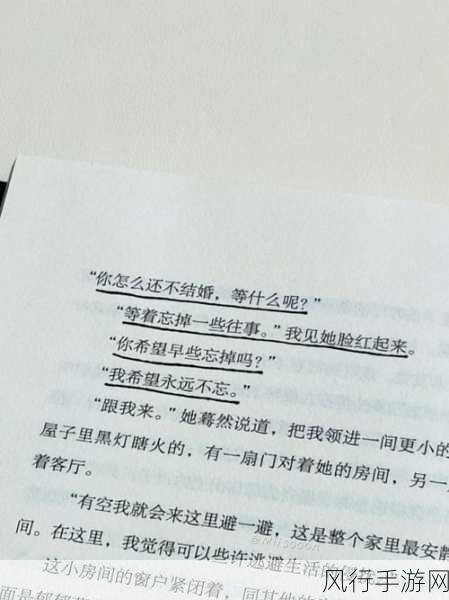 “你怎么还不结婚，等什么呢？”
“等着忘掉一些往事。”我见她脸红起来。
“你希望早些忘掉吗？”
“我希望永远不忘。”
“跟我来。”她蓦然说道，把我领进一间更小的
屋子里黑灯瞎火的，有一扇门对着她的房间，另一
着客厅。
“有空我就会来这里避一避，这是整个家里最安静
间。在这里，我觉得可以些许逃避生活的
这小房间的窗户紧闭着，同其他的
面是
风行手游网